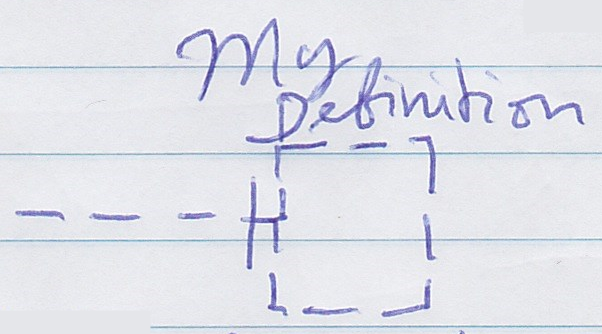 My
Definition